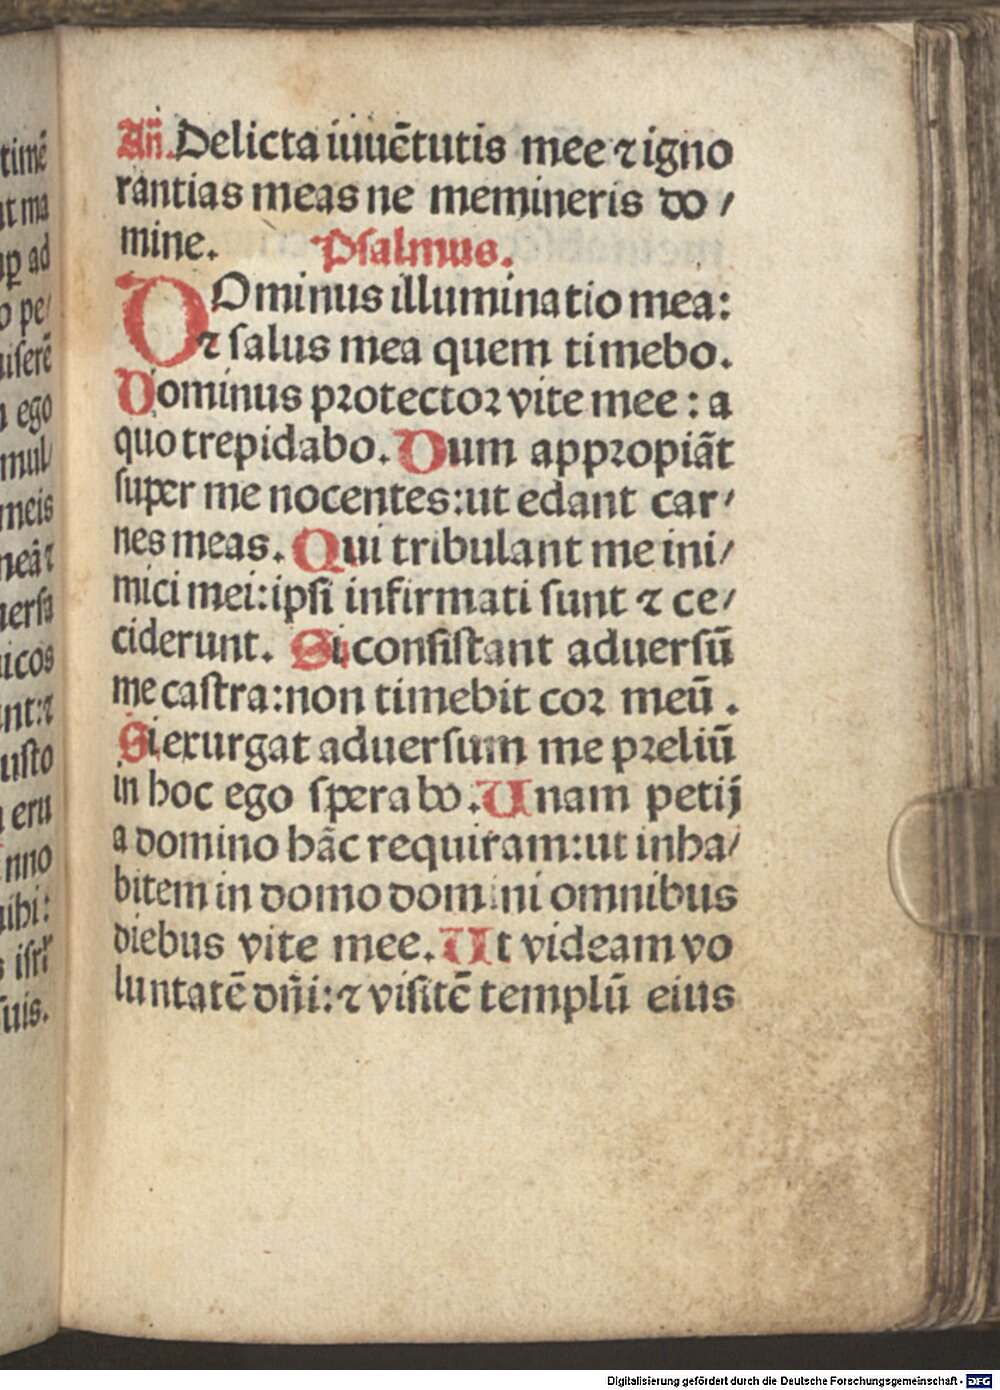 An̄. Delicta iuuētutis mee ⁊ igno
rantias meas ne memineris do /
mine. Psalmus.
DOminus illuminatio mea:
⁊ salus mea quem timebo.
Dominus protector vite mee : a
quo trepidabo. Dum appropiāt
super me nocentes: ut edant car /
nes meas. Qui tribulant me ini /
mici mei: ipsi infirmati sunt ⁊ ce /
ciderunt. Si consistant aduersū
me castra: non timebit cor meū .
Si exurgat aduersum me preliū
in hoc ego sperabo. Unam petij
a domino hāc requiram: ut inha /
bitem in domo domini omnibus
diebus vite mee. Ut videam vo
luntatē dn̄i: ⁊ visitē templū eius
timē
ut ma
ad
o pe /
ego
mul /
meis
meā ⁊
uersa
icos
nt: ⁊
usto
eru
nno
ihi:
isrl̄
suis.
Digitalisierung gefördert durch die Deutsche Forschungsgemeinschaft - DFG